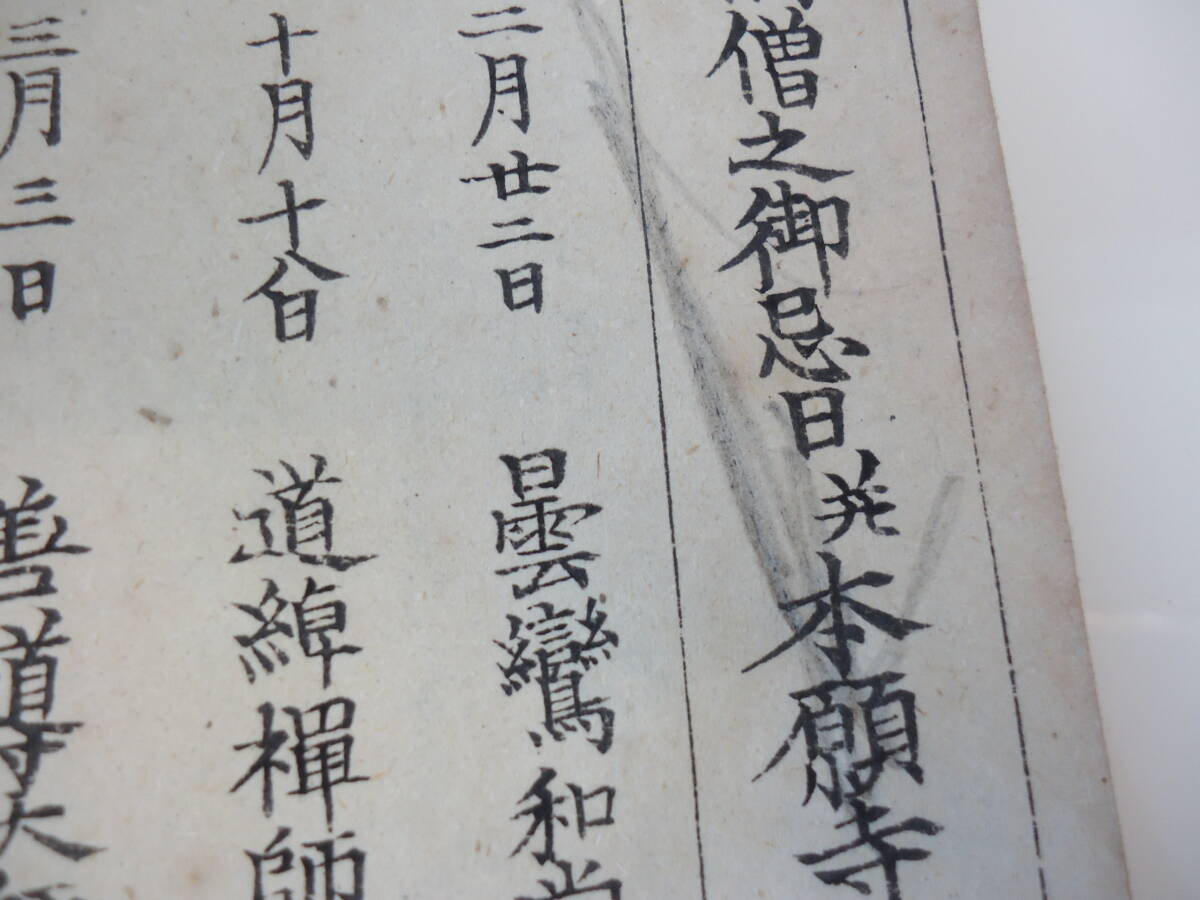 僧之御忌日并本願寺
二月廿二日 曇鸞和尚
十月十八日 道綽禅師
三月三日 善導大